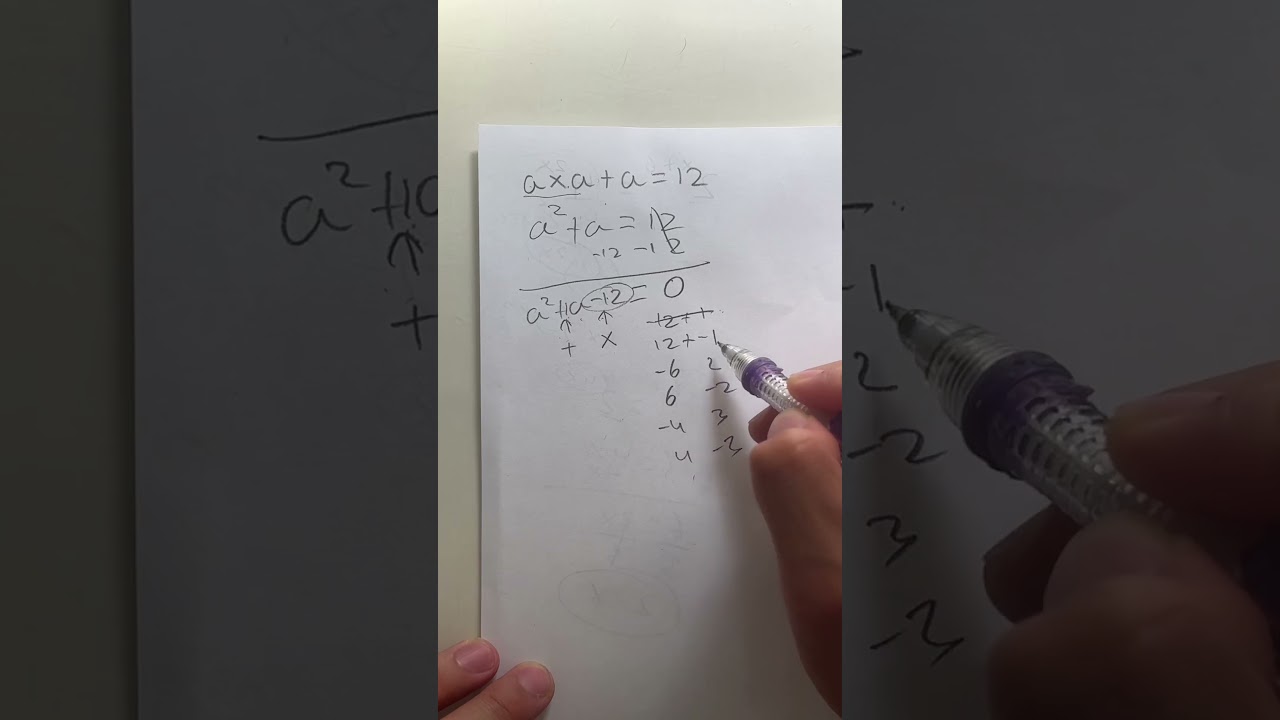 a x a + a = 12
a² + a = 12
-12 -12
a² + 1a - 12 = 0
↑ ↑
+ x
-12 + 1
12 + -1
-6 2
6 -2
-4 3
4 -3